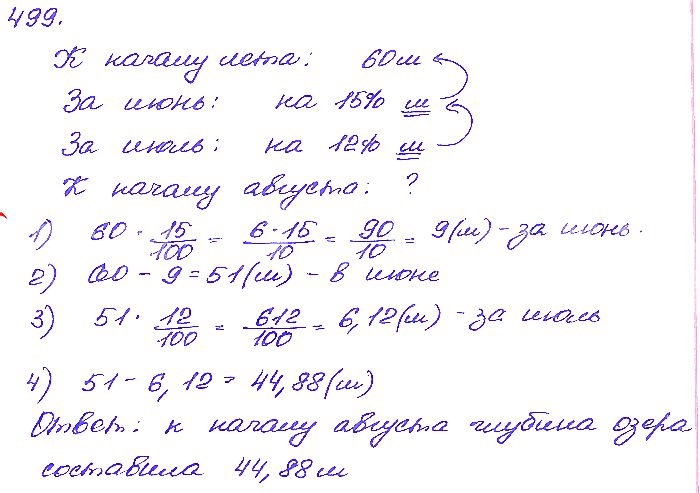 499.
К началу лета: 60м
За июнь: на 15% м
За июль: на 12% м
К началу августа: ?
1) 60 · 15/100 = 6·15/10 = 90/10 = 9(м) - за июнь.
2) 60 - 9 = 51(м) - в июне
3) 51 · 12/100 = 612/100 = 6,12(м) - за июль
4) 51 - 6,12 = 44,88(м)
Ответ: к началу августа глубина озера
составила 44,88м